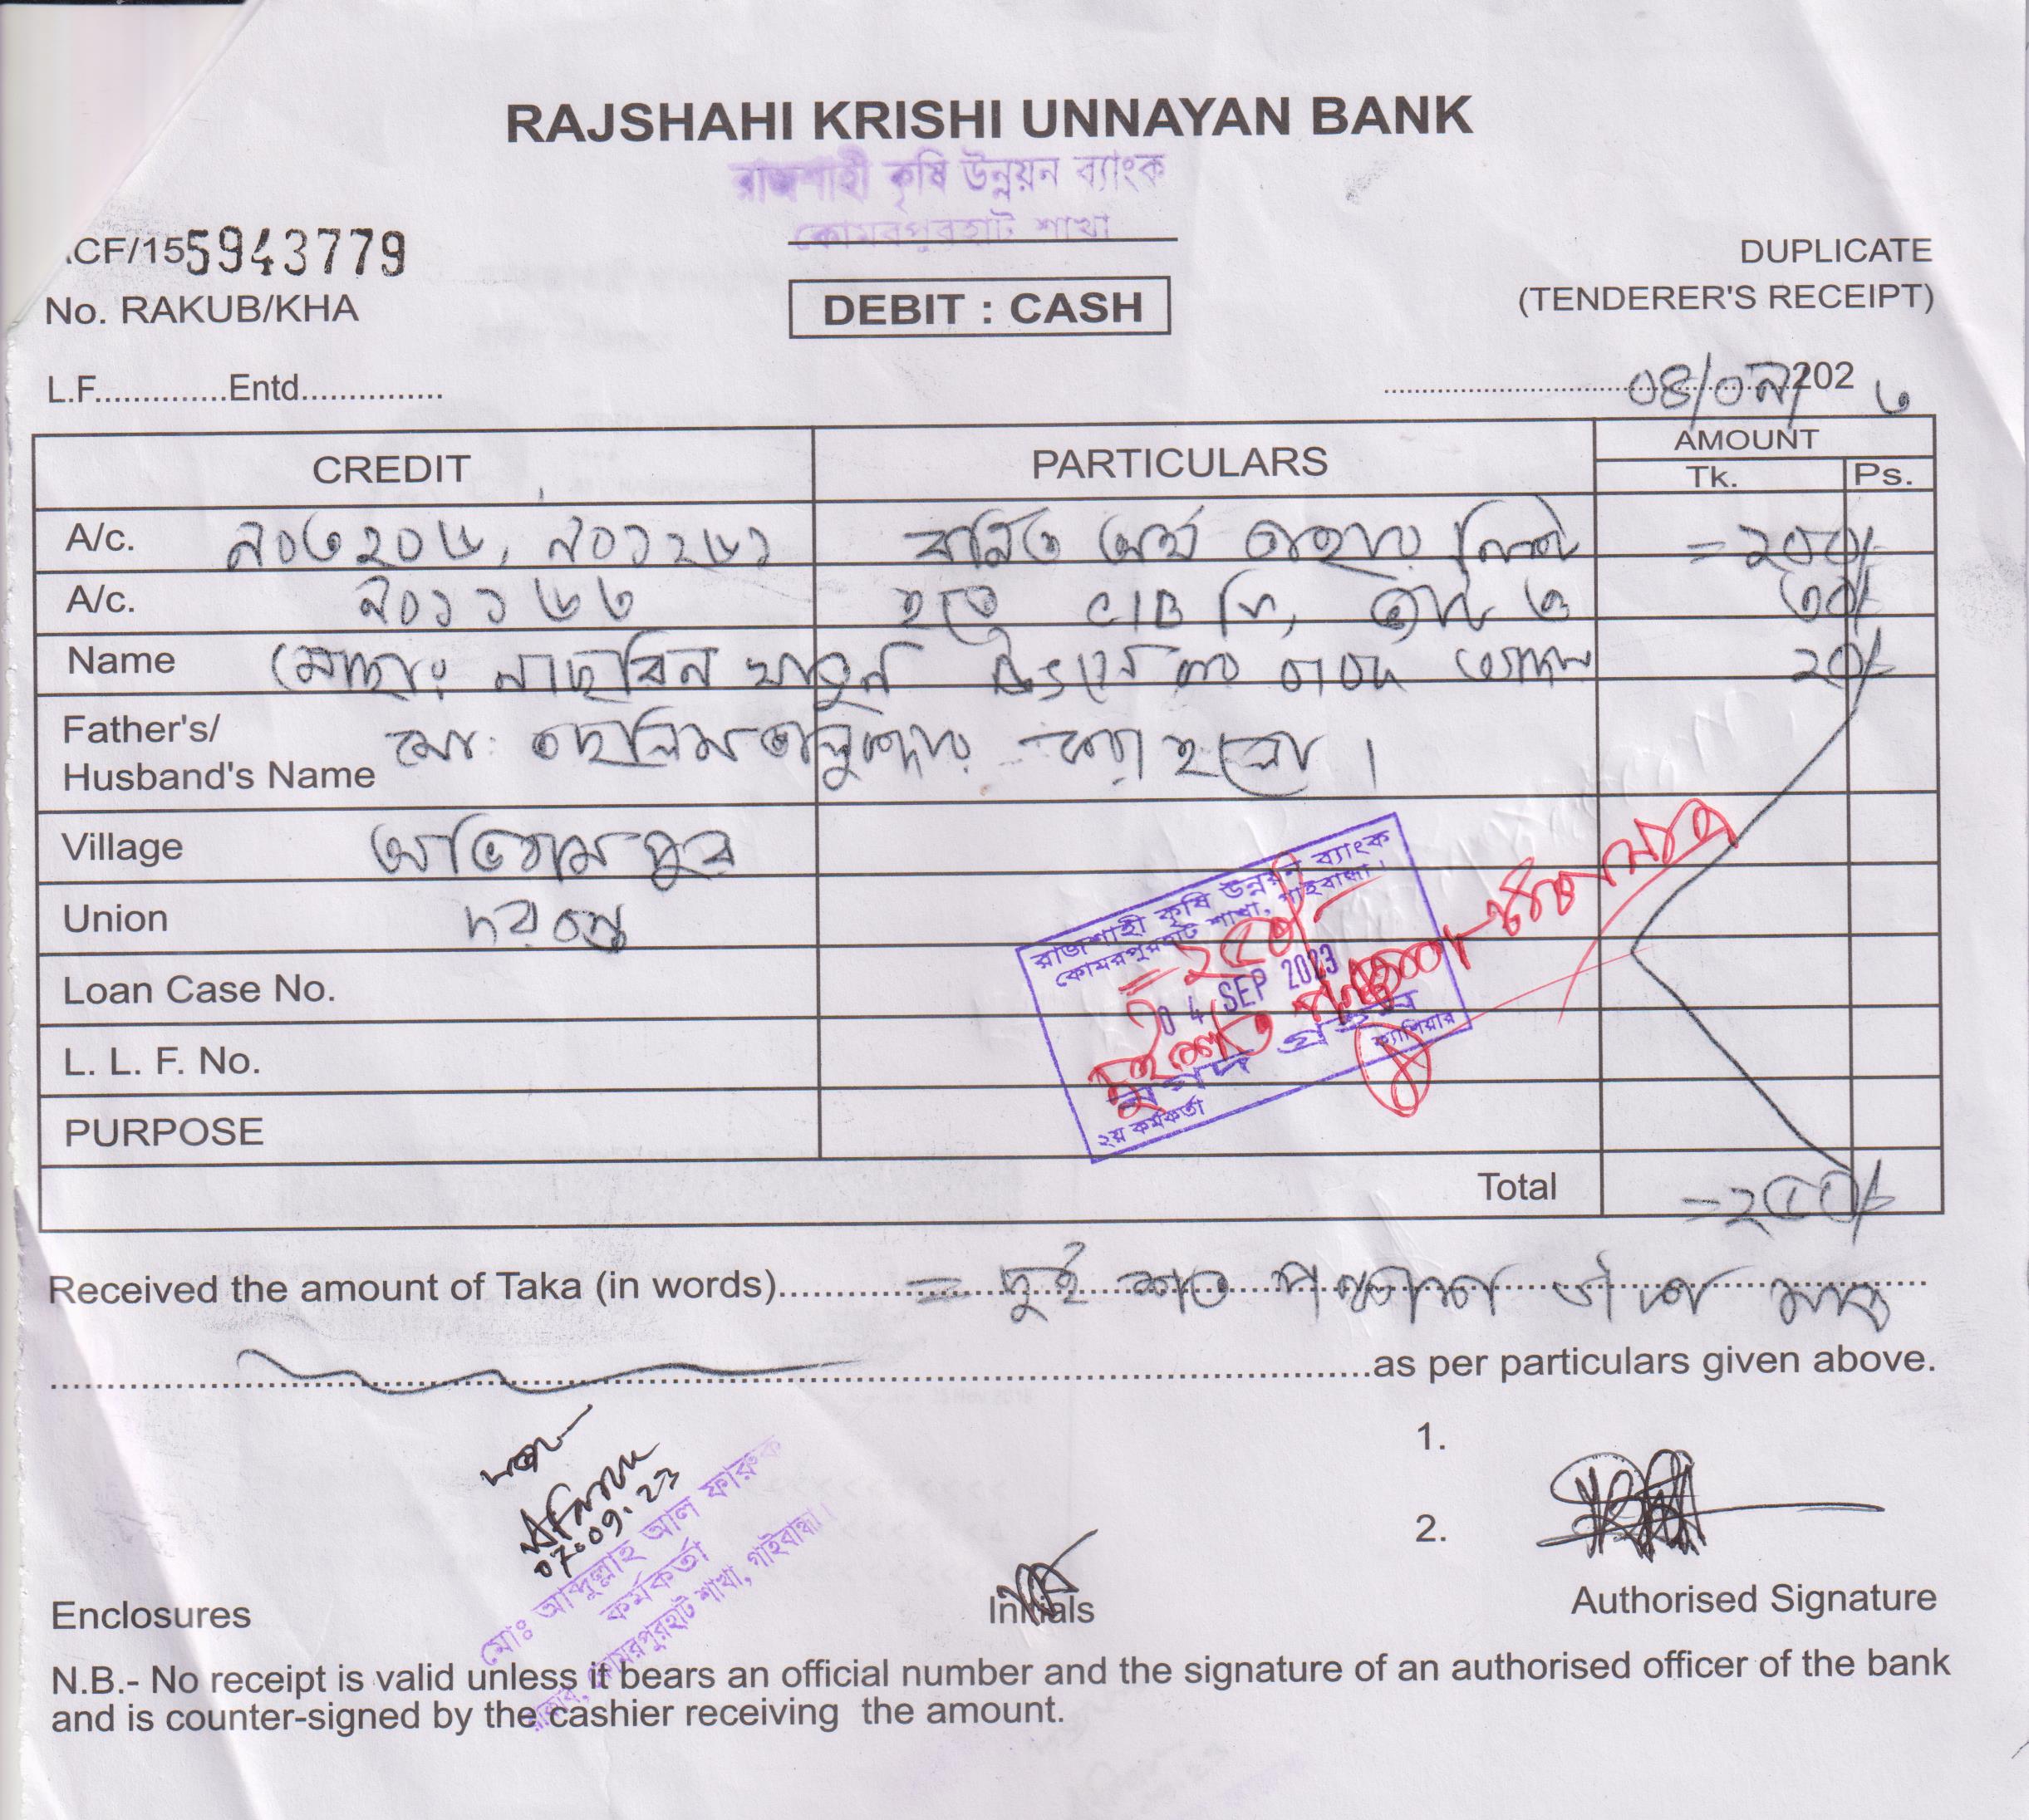 RAJSHAHI KRISHI UNNAYAN BANK
রাজশাহী কৃষি উন্নয়ন ব্যাংক
কোমরপুরহাট শাখা
CF/15 5943779
No. RAKUB/KHA
DEBIT : CASH
DUPLICATE
(TENDERER'S RECEIPT)
L.F..............Entd...............
০৪/০৯/202 ৩
CREDIT
PARTICULARS
AMOUNT
Tk.
Ps.
A/c. ৯০৩২০৬, ৯০১২৬১
বর্নিত অর্থ তাহার নিকট
=২০০/-
A/c. ৯০১১৬৩
হতে CIB ফি, ও
৩০/-
Name মোছাঃ নাছরিন খাতুন
বাবদ আদায়
২০/-
Father's/
Husband's Name মোঃ তছলিম তালুকদার
করা হলো।
Village অভিরামপুর
Union দরবস্ত
Loan Case No.
L. L. F. No.
PURPOSE
রাজশাহী কৃষি উন্নয়ন ব্যাংক
কোমরপুরহাট শাখা, গাইবান্ধা।
= ২৫০/-
04 SEP 2023
দুইশত পঞ্চাশ টাকা মাত্র
নগদ গ্রহণ
২য় কর্মকর্তা
ক্যাশিয়ার
Total =২৫০/-
Received the amount of Taka (in words) = দুই শত পঞ্চাশ টাকা মাত্র
as per particulars given above.
1.
2.
AFaruk
07.09.23
মোঃ আব্দুল্লাহ আল ফারুক
কর্মকর্তা
রাকাব, কোমরপুরহাট শাখা, গাইবান্ধা।
Enclosures
Initials
Authorised Signature
N.B.- No receipt is valid unless if bears an official number and the signature of an authorised officer of the bank
and is counter-signed by the cashier receiving the amount.